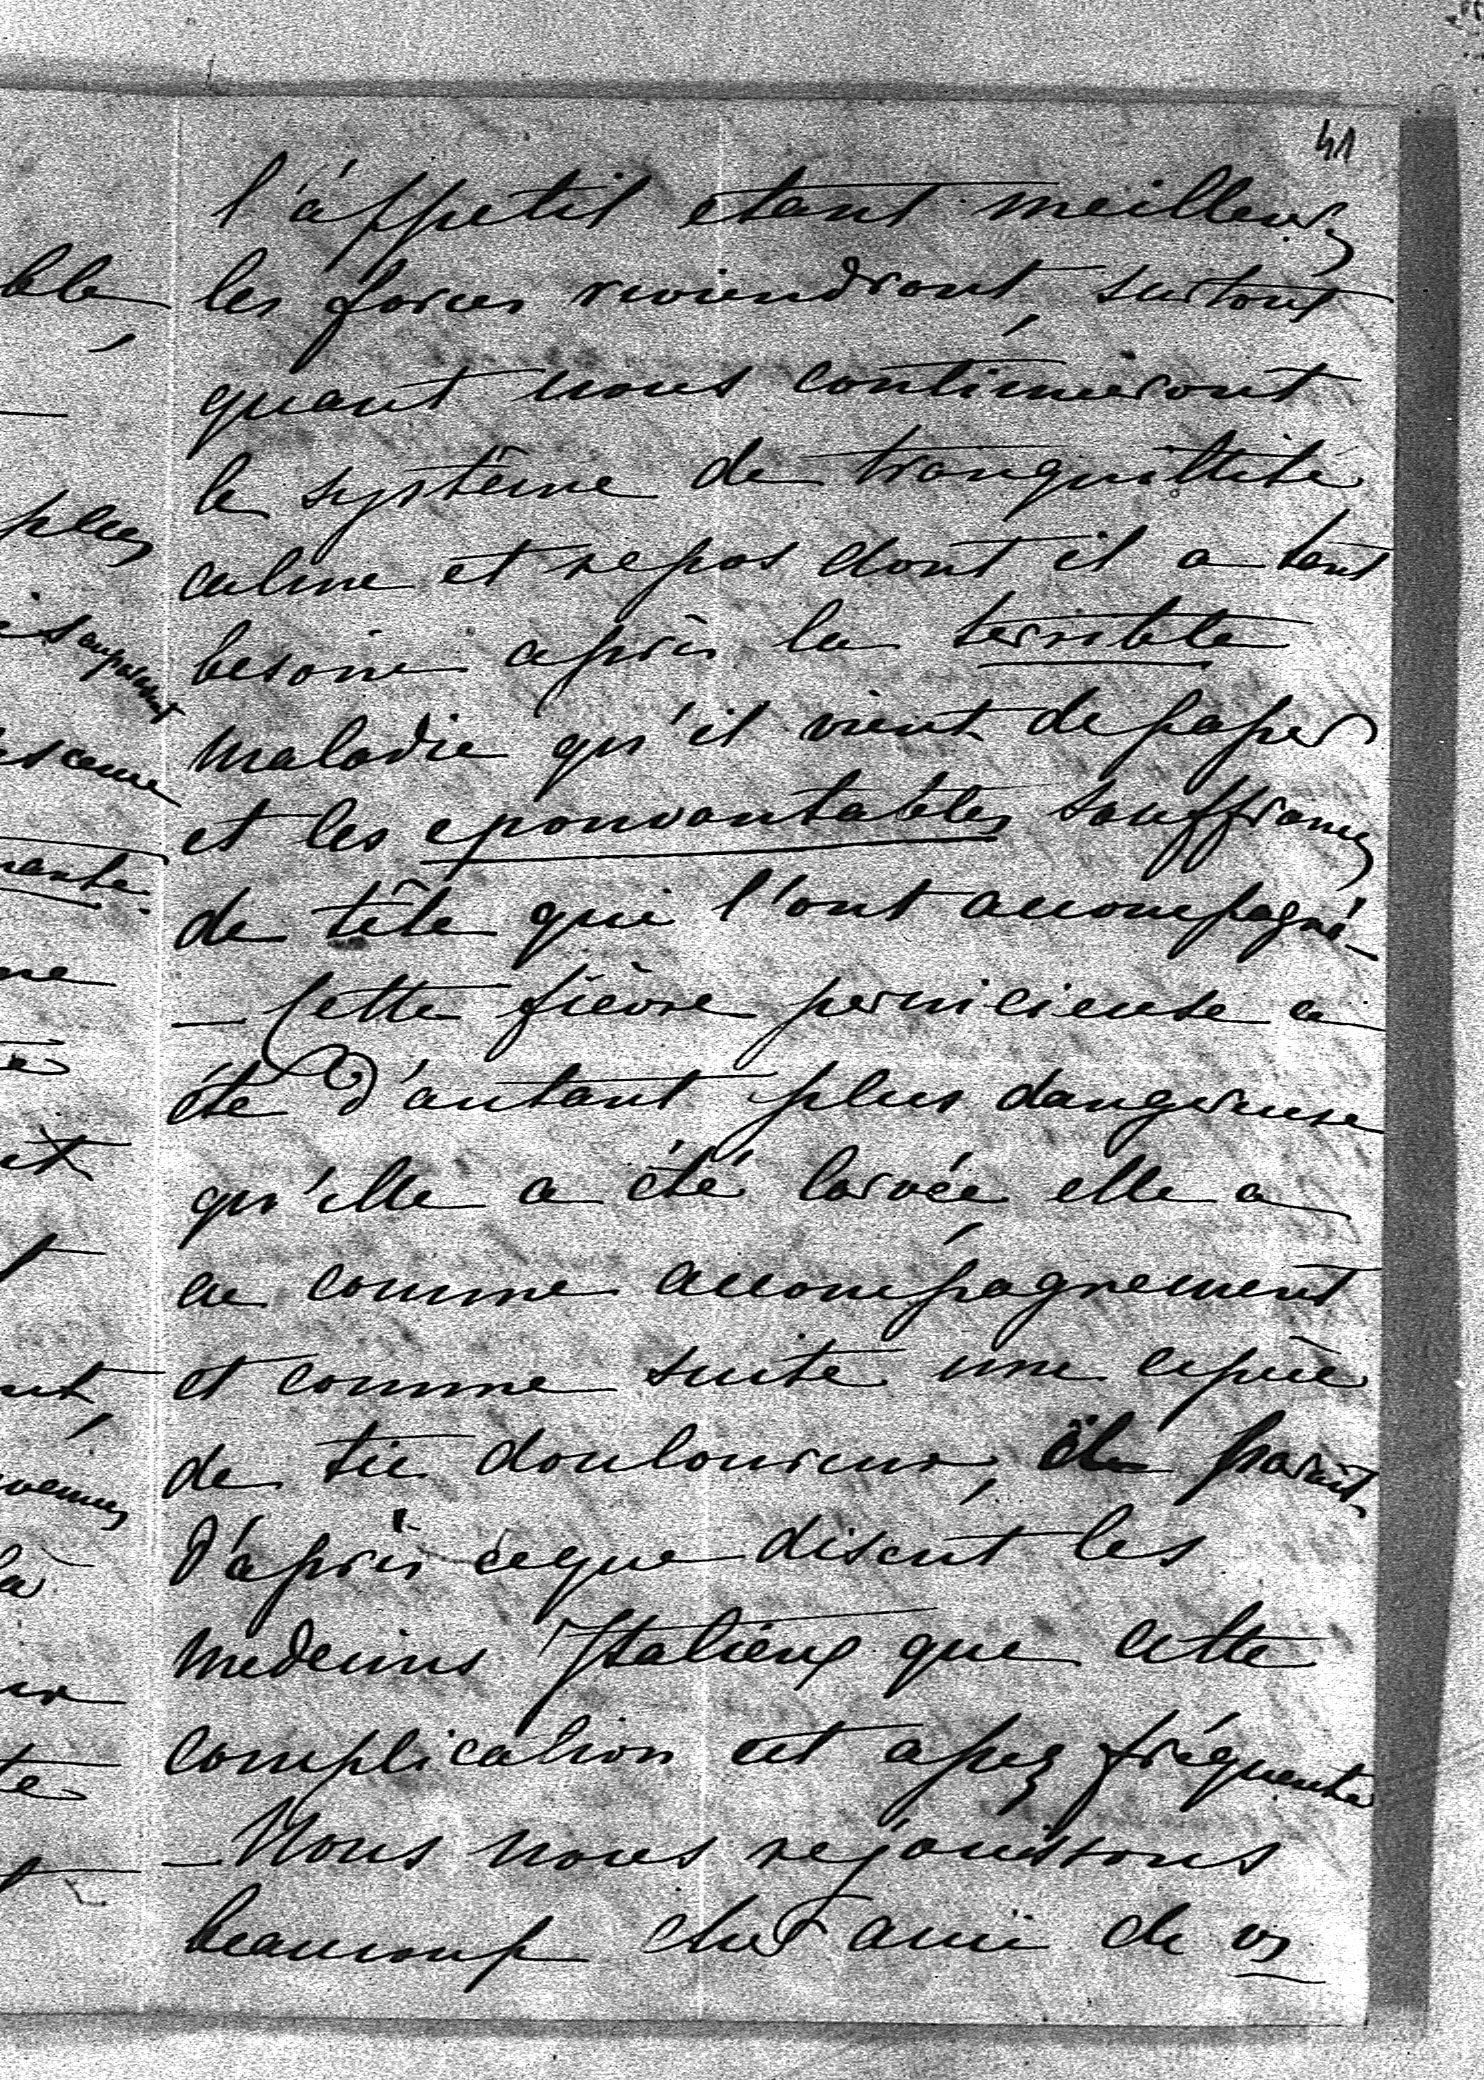 41
l'áppetit etant meilleur
les forces reviendront surtout
quant nous continueront
le système de tranquillité
calme et repos dont il a tant
besoin après la terrible
maladie qu'il vient de passer
et les epouvantables souffrances
de tête qui l'ont accompagné
— Cette fièvre pernicieuse a
été d'autant plus dangereuse
qu'elle a été larvée elle a
eu comme accompagnement
et comme suite une espèce
de tic douloureux, il parait
d'après ceque disent les
medecins Italiens que cette
complication est assez fréquente
— Nous nous rejouissons
beaucoup cher ami de vs